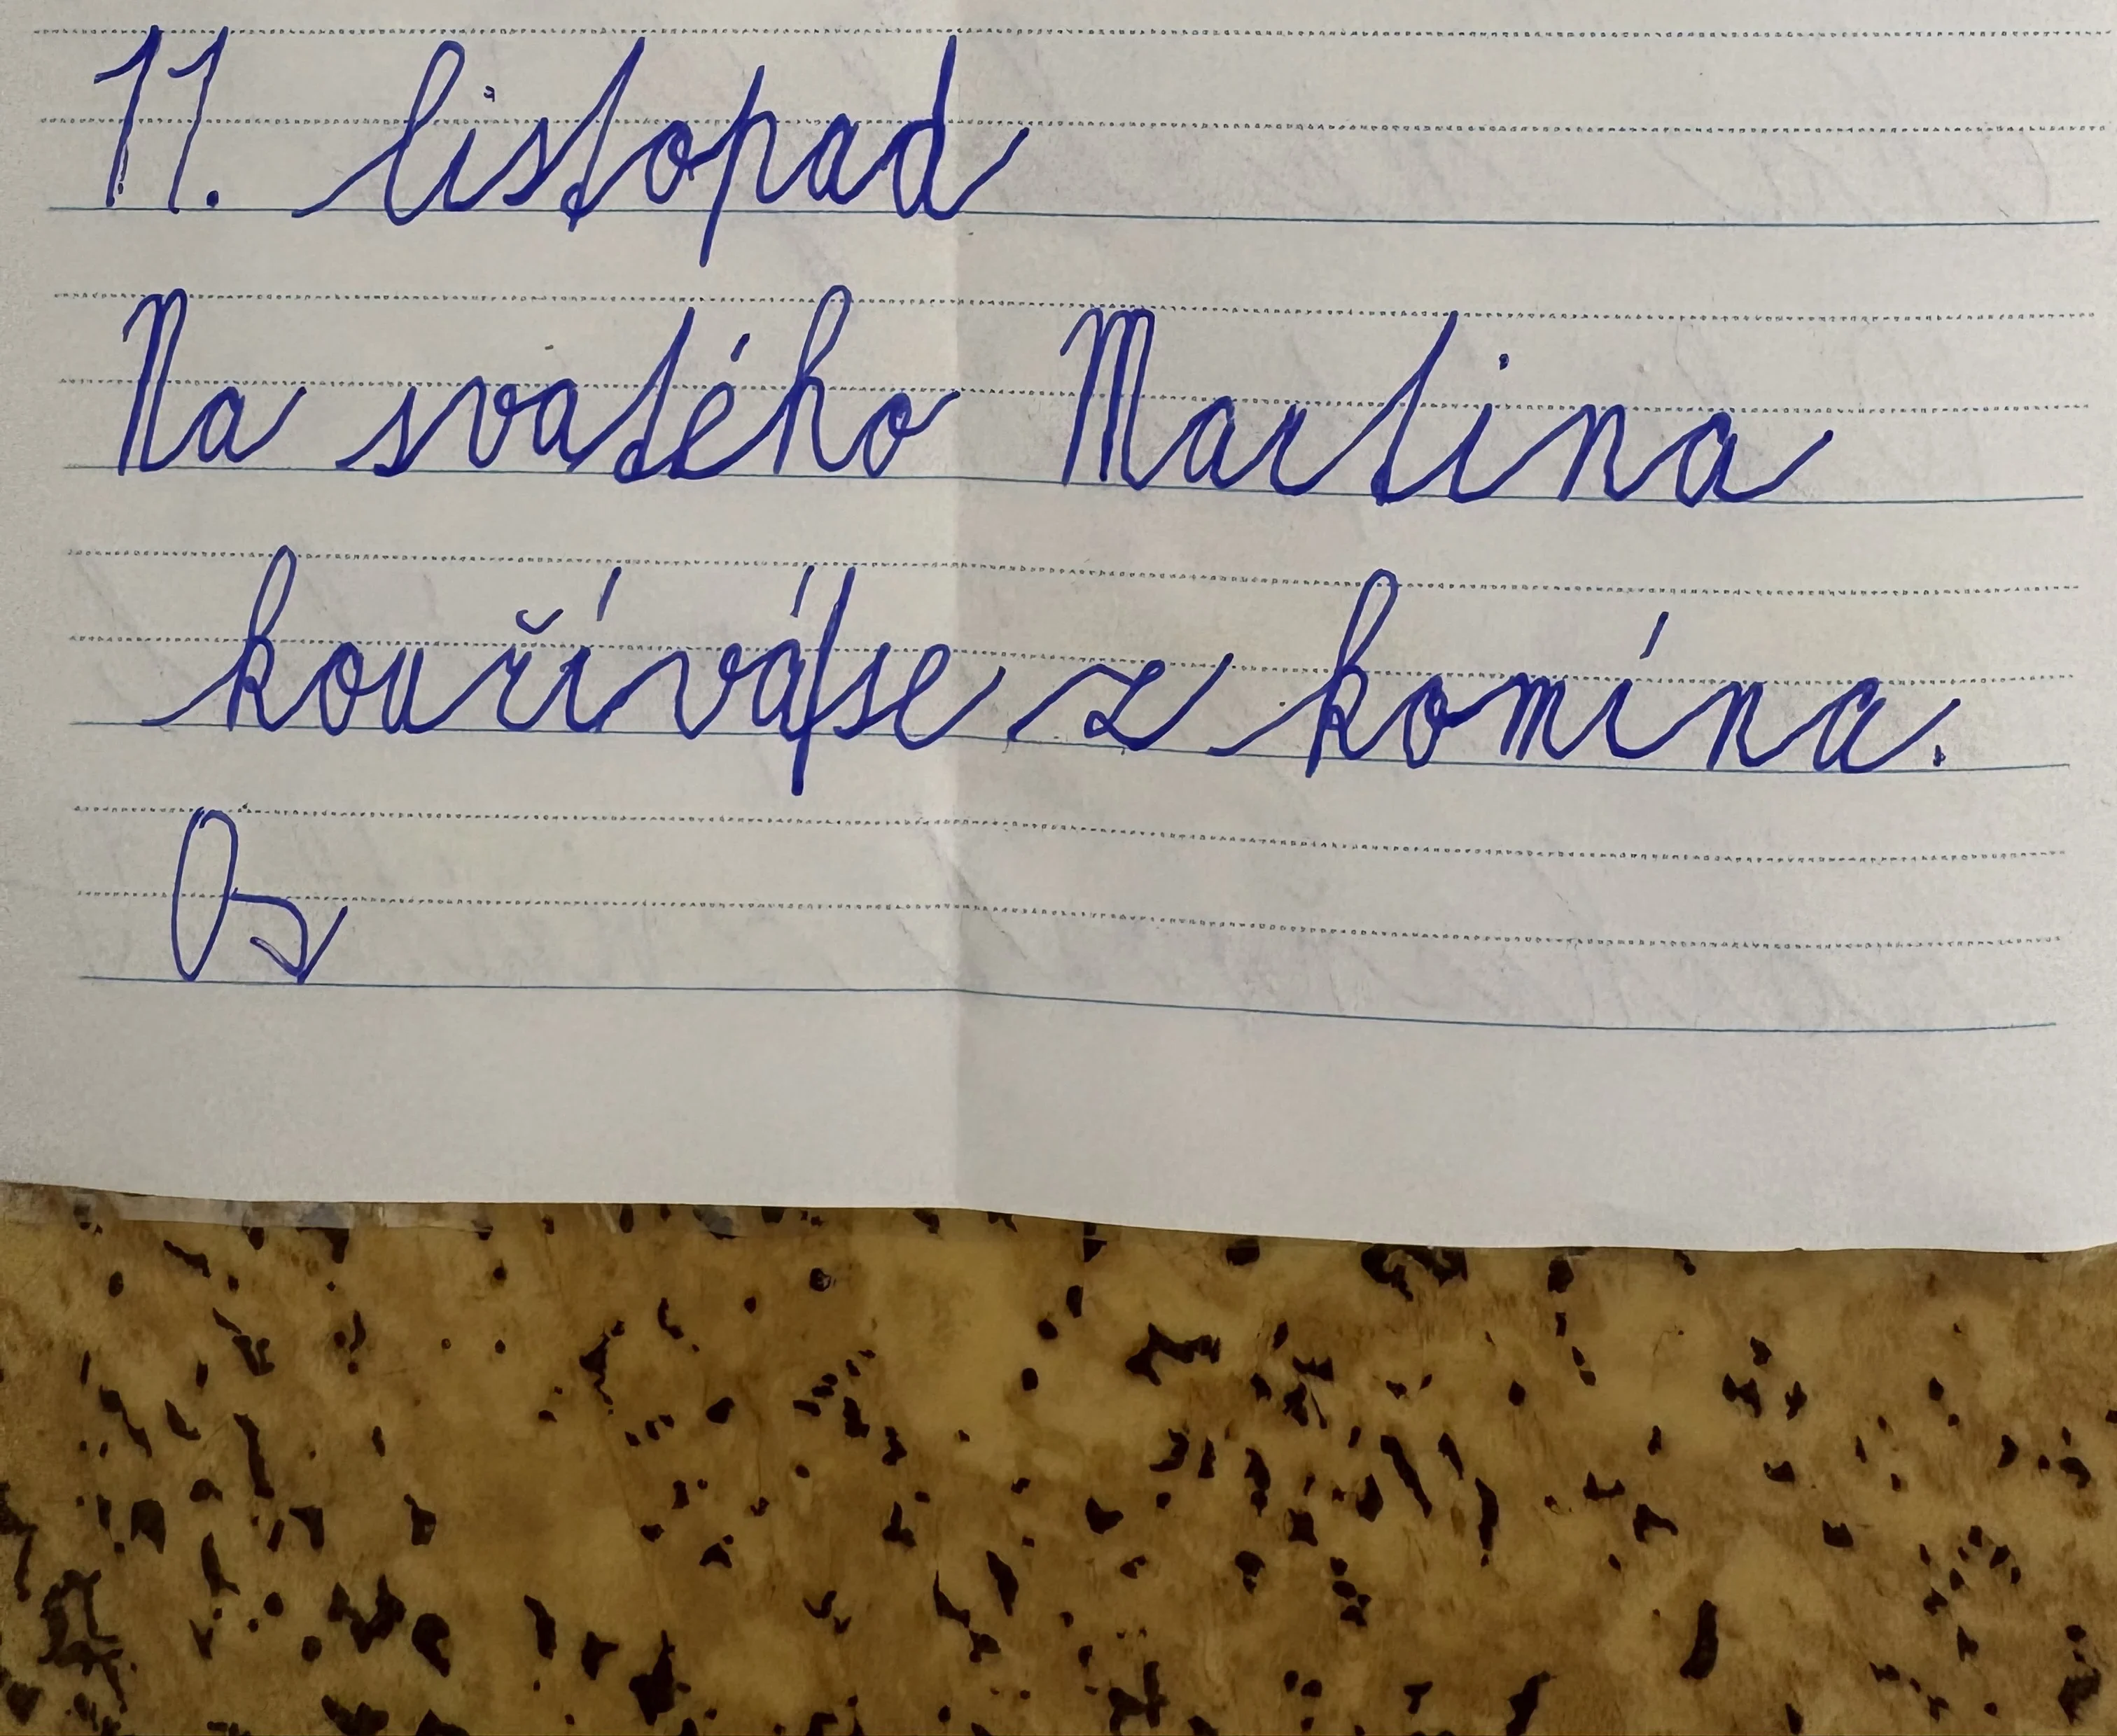 11. listopad
Na svatého Martina
kouřívá se z komína.